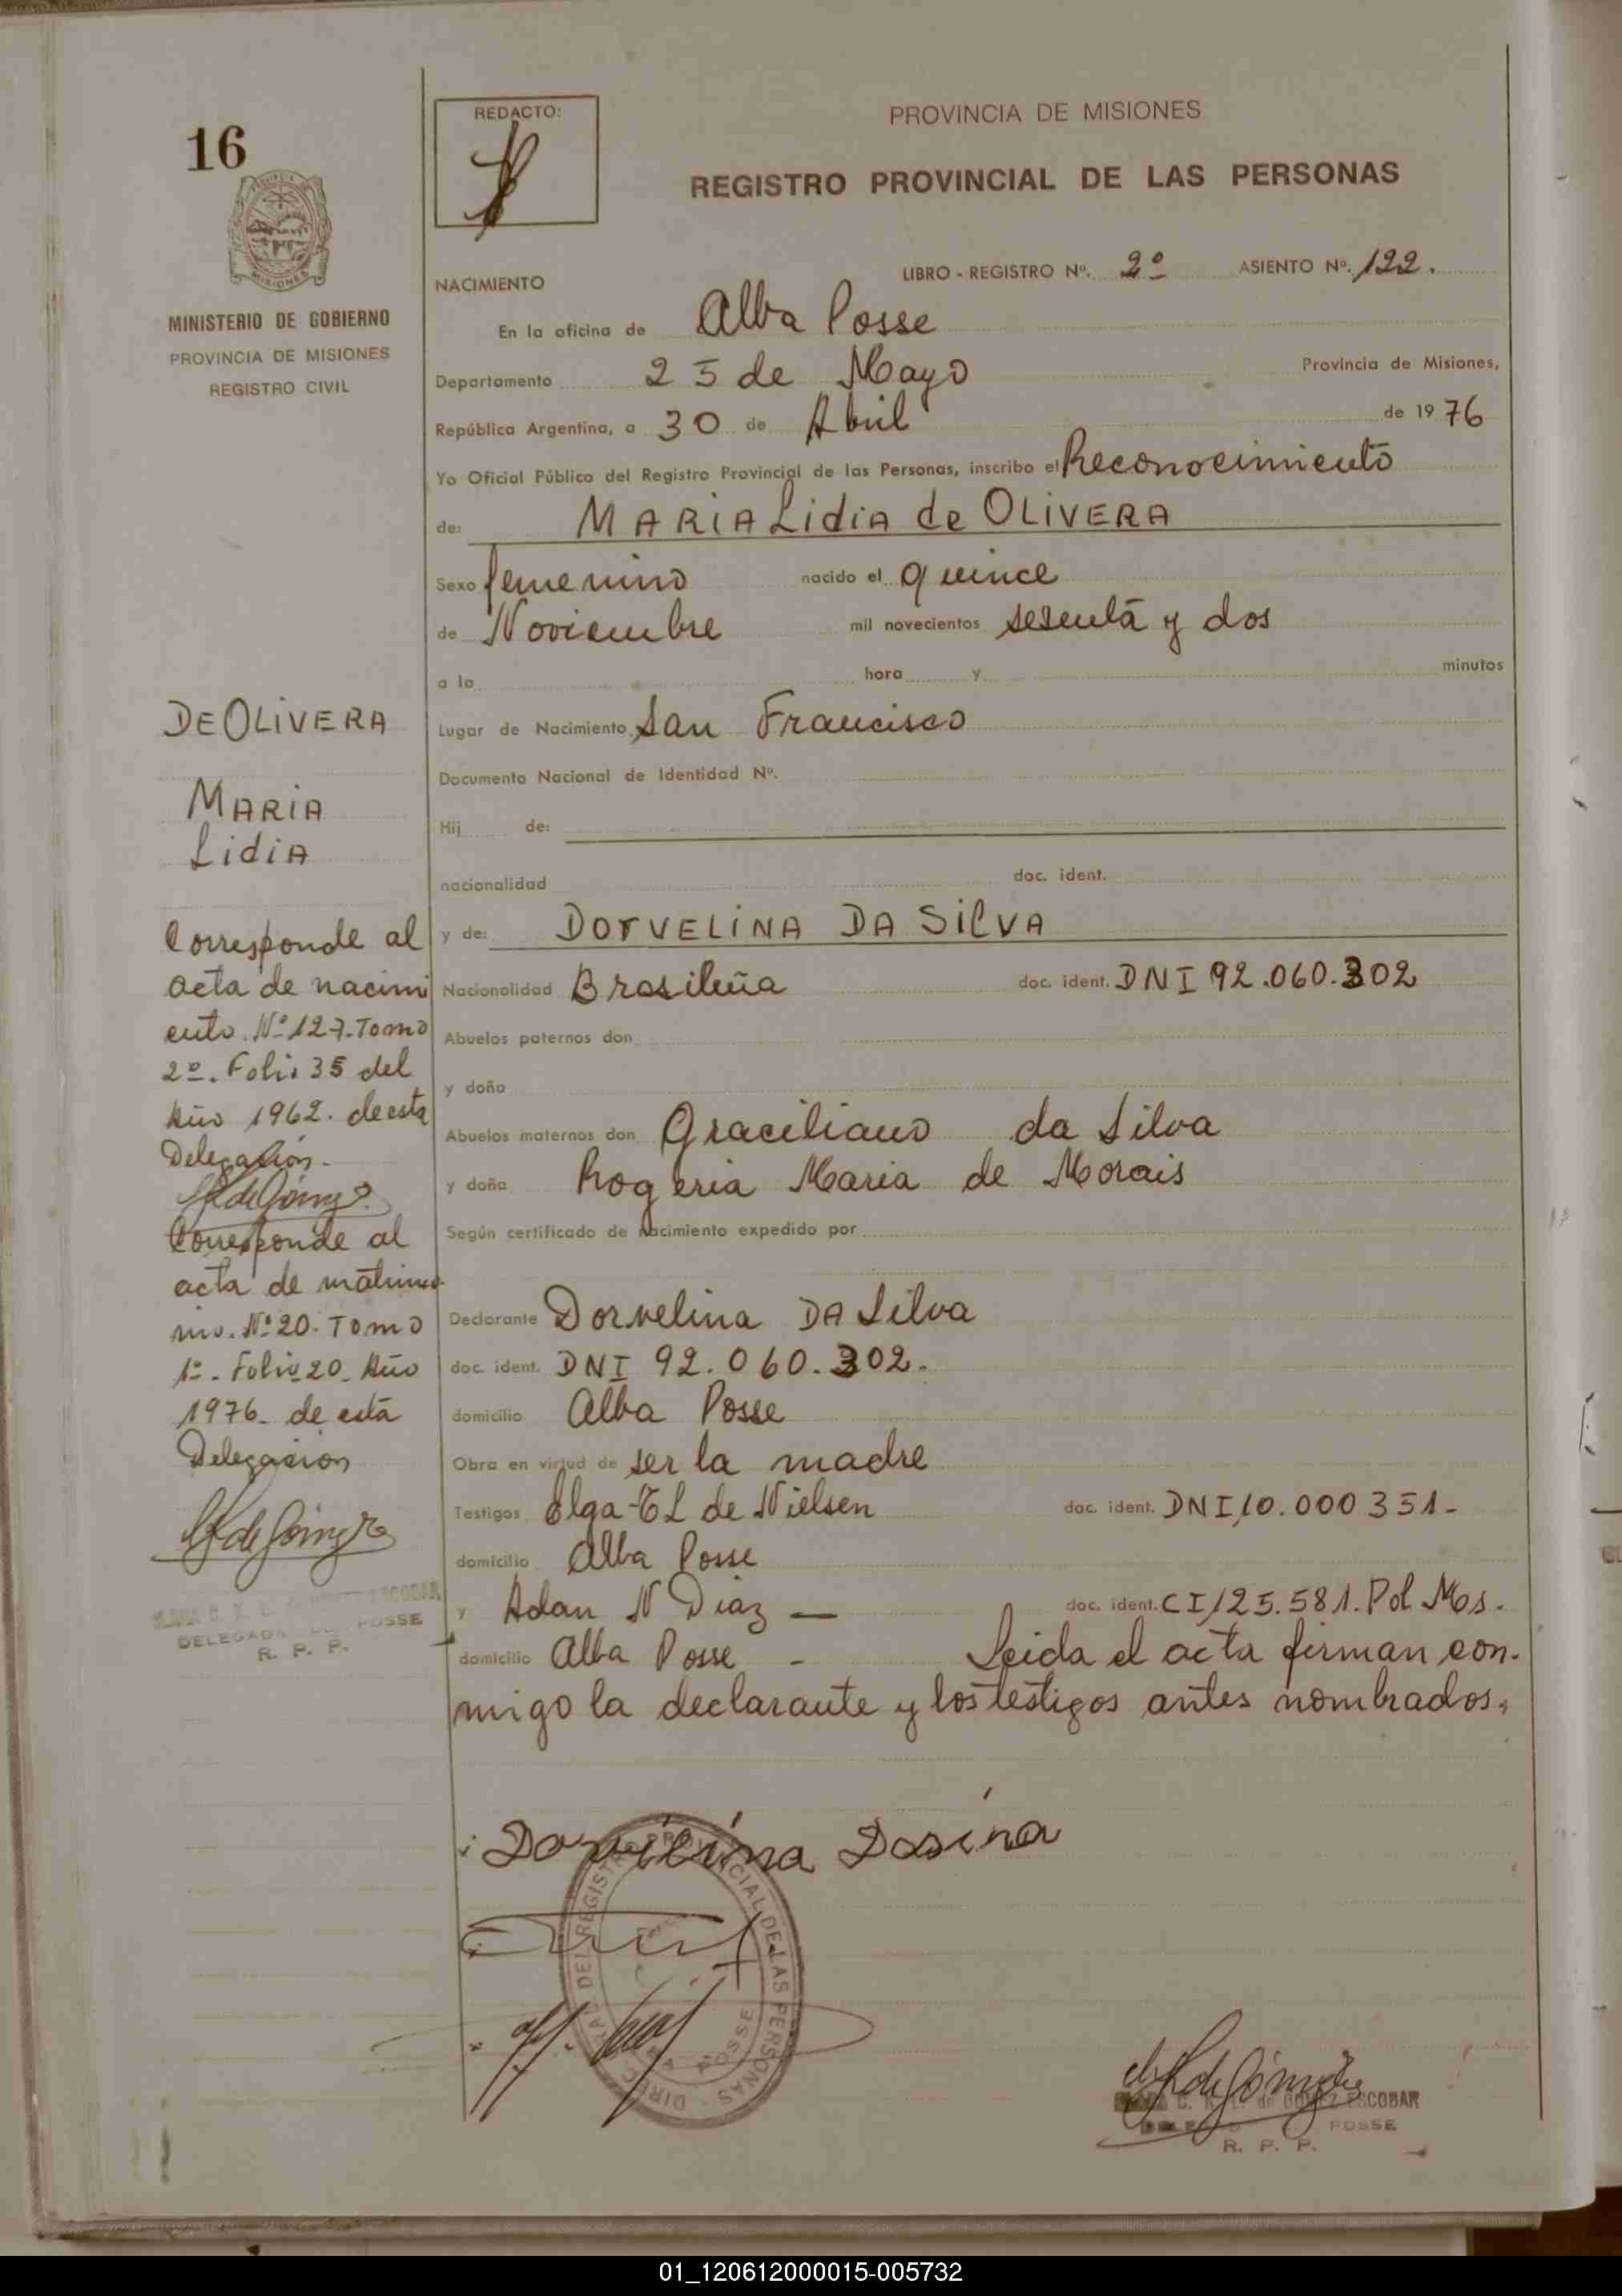 16
REDACTO:
PROVINCIA DE MISIONES
REGISTRO PROVINCIAL DE LAS PERSONAS
MINISTERIO DE GOBIERNO
PROVINCIA DE MISIONES
REGISTRO CIVIL
LIBRO - REGISTRO Nº. 2º ASIENTO Nº. 122.
NACIMIENTO
En la oficina de Alba Posse
Departamento 25 de Mayo Provincia de Misiones,
República Argentina, a 30 de Abril de 1976
Yo Oficial Público del Registro Provincial de las Personas, inscribo el Reconocimiento
de: MARIA Lidia de OLIVERA
Sexo femenino nacido el quince
de Noviembre mil novecientos sesenta y dos
a la hora y minutos
Lugar de Nacimiento San Francisco
Documento Nacional de Identidad Nº.
Hij de:
nacionalidad doc. ident.
y de: DORVELINA DA SILVA
Nacionalidad Brasileña doc. ident. DNI 92.060.302
Abuelos paternos don
y doña
Abuelos maternos don Graciliano da Silva
y doña Rogeria Maria de Morais
Según certificado de nacimiento expedido por
Declarante Dorvelina DA Silva
doc. ident. DNI 92.060.302.
domicilio Alba Posse
Obra en virtud de ser la madre
Testigos Elga E L de Nielsen doc. ident. DNI 10.000351-
domicilio Alba Posse
y Adan N Diaz — doc. ident. CI 125.581. Pol Mos.
domicilio Alba Posse - Leida el acta firman con-
migo la declarante y los testigos antes nombrados.
DE OLIVERA
MARIA
Lidia
Corresponde al
acta de nacimi
ento. Nº 127. Tomo
2º. Folio 35 del
Año 1962. de esta
Delegación.
Corresponde al
acta de matrimo
nio. Nº 20. Tomo
1º. Folio 20. Año
1976. de esta
Delegación
ESCOBAR
POSSE
R. P. P.
Dorvilina Dasina
REGISTRO PROVINCIAL DE LAS PERSONAS
POSSE
de GOMEZ ESCOBAR
POSSE
R. P. P.
01_120612000015-005732